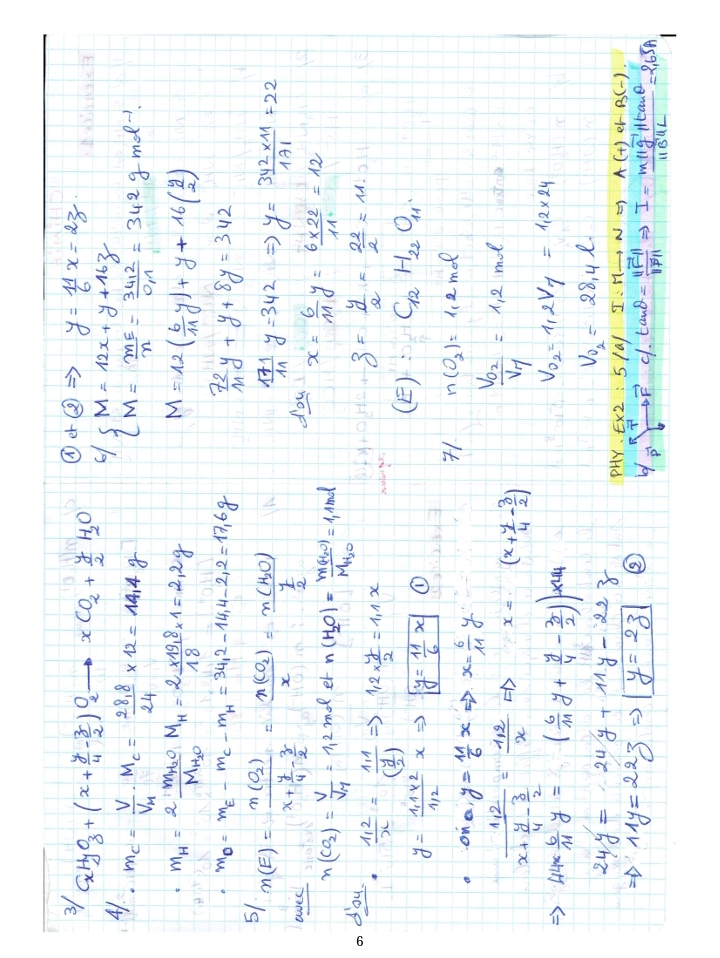 3/ CxHyOz + (x + y/4 - z/2) O2 → x CO2 + y/2 H2O
4/ • mC = V/VM . MC = 28,8/24 x 12 = 14,4 g
• mH = 2 mH2O/MH2O MH = 2 x 19,8/18 x 1 = 2,2g
• mO = mE - mC - mH = 34,2 - 14,4 - 2,2 = 17,6g
5/ n(E) = n(O2)/(x + y/4 - z/2) = n(CO2)/x = n(H2O)/(y/2)
avec n(CO2) = V/VM = 1,2 mol et n(H2O) = m(H2O)/MH2O = 1,1 mol
d'où • 1,2/x = 1,1/(y/2) => 1,2 x y/2 = 1,1 x
y = 1,1 x 2/1,2 x => y = 11/6 x ①
• on a, y = 11/6 x => x = 6/11 y
1,2/(x + y/4 - z/2) = 1,2/x => x = (x + y/4 - z/2)
=> 44 x 6/11 y = (6/11 y + y/4 - z/2) x 44
24 y = 24 y + 11 y - 22 z
=> 11y = 22z => y = 2z ②
① et ② => y = 11/6 x = 2z
6/ { M = 12x + y + 16z
M = mE/n = 34,2/0,1 = 342 g mol-1.
M = 12 (6/11 y) + y + 16 (y/2)
72/11 y + y + 8y = 342
171/11 y = 342 => y = 342 x 11/171 = 22
d'où x = 6/11 y = 6 x 22/11 = 12
z = y/2 = 22/2 = 11.
(E) : C12 H22 O11
7/ n(O2) = 1,2 mol
VO2/VM = 1,2 mol
VO2 = 1,2 VM = 1,2 x 24
VO2 = 28,4 l.
PHY. Ex2 : 5/a/ I : M → N => A(+) et B(-).
b/ R T F P c/. tanθ = ||F||/||P|| => I = m||g||tanθ/||B||L = 2,63A
6